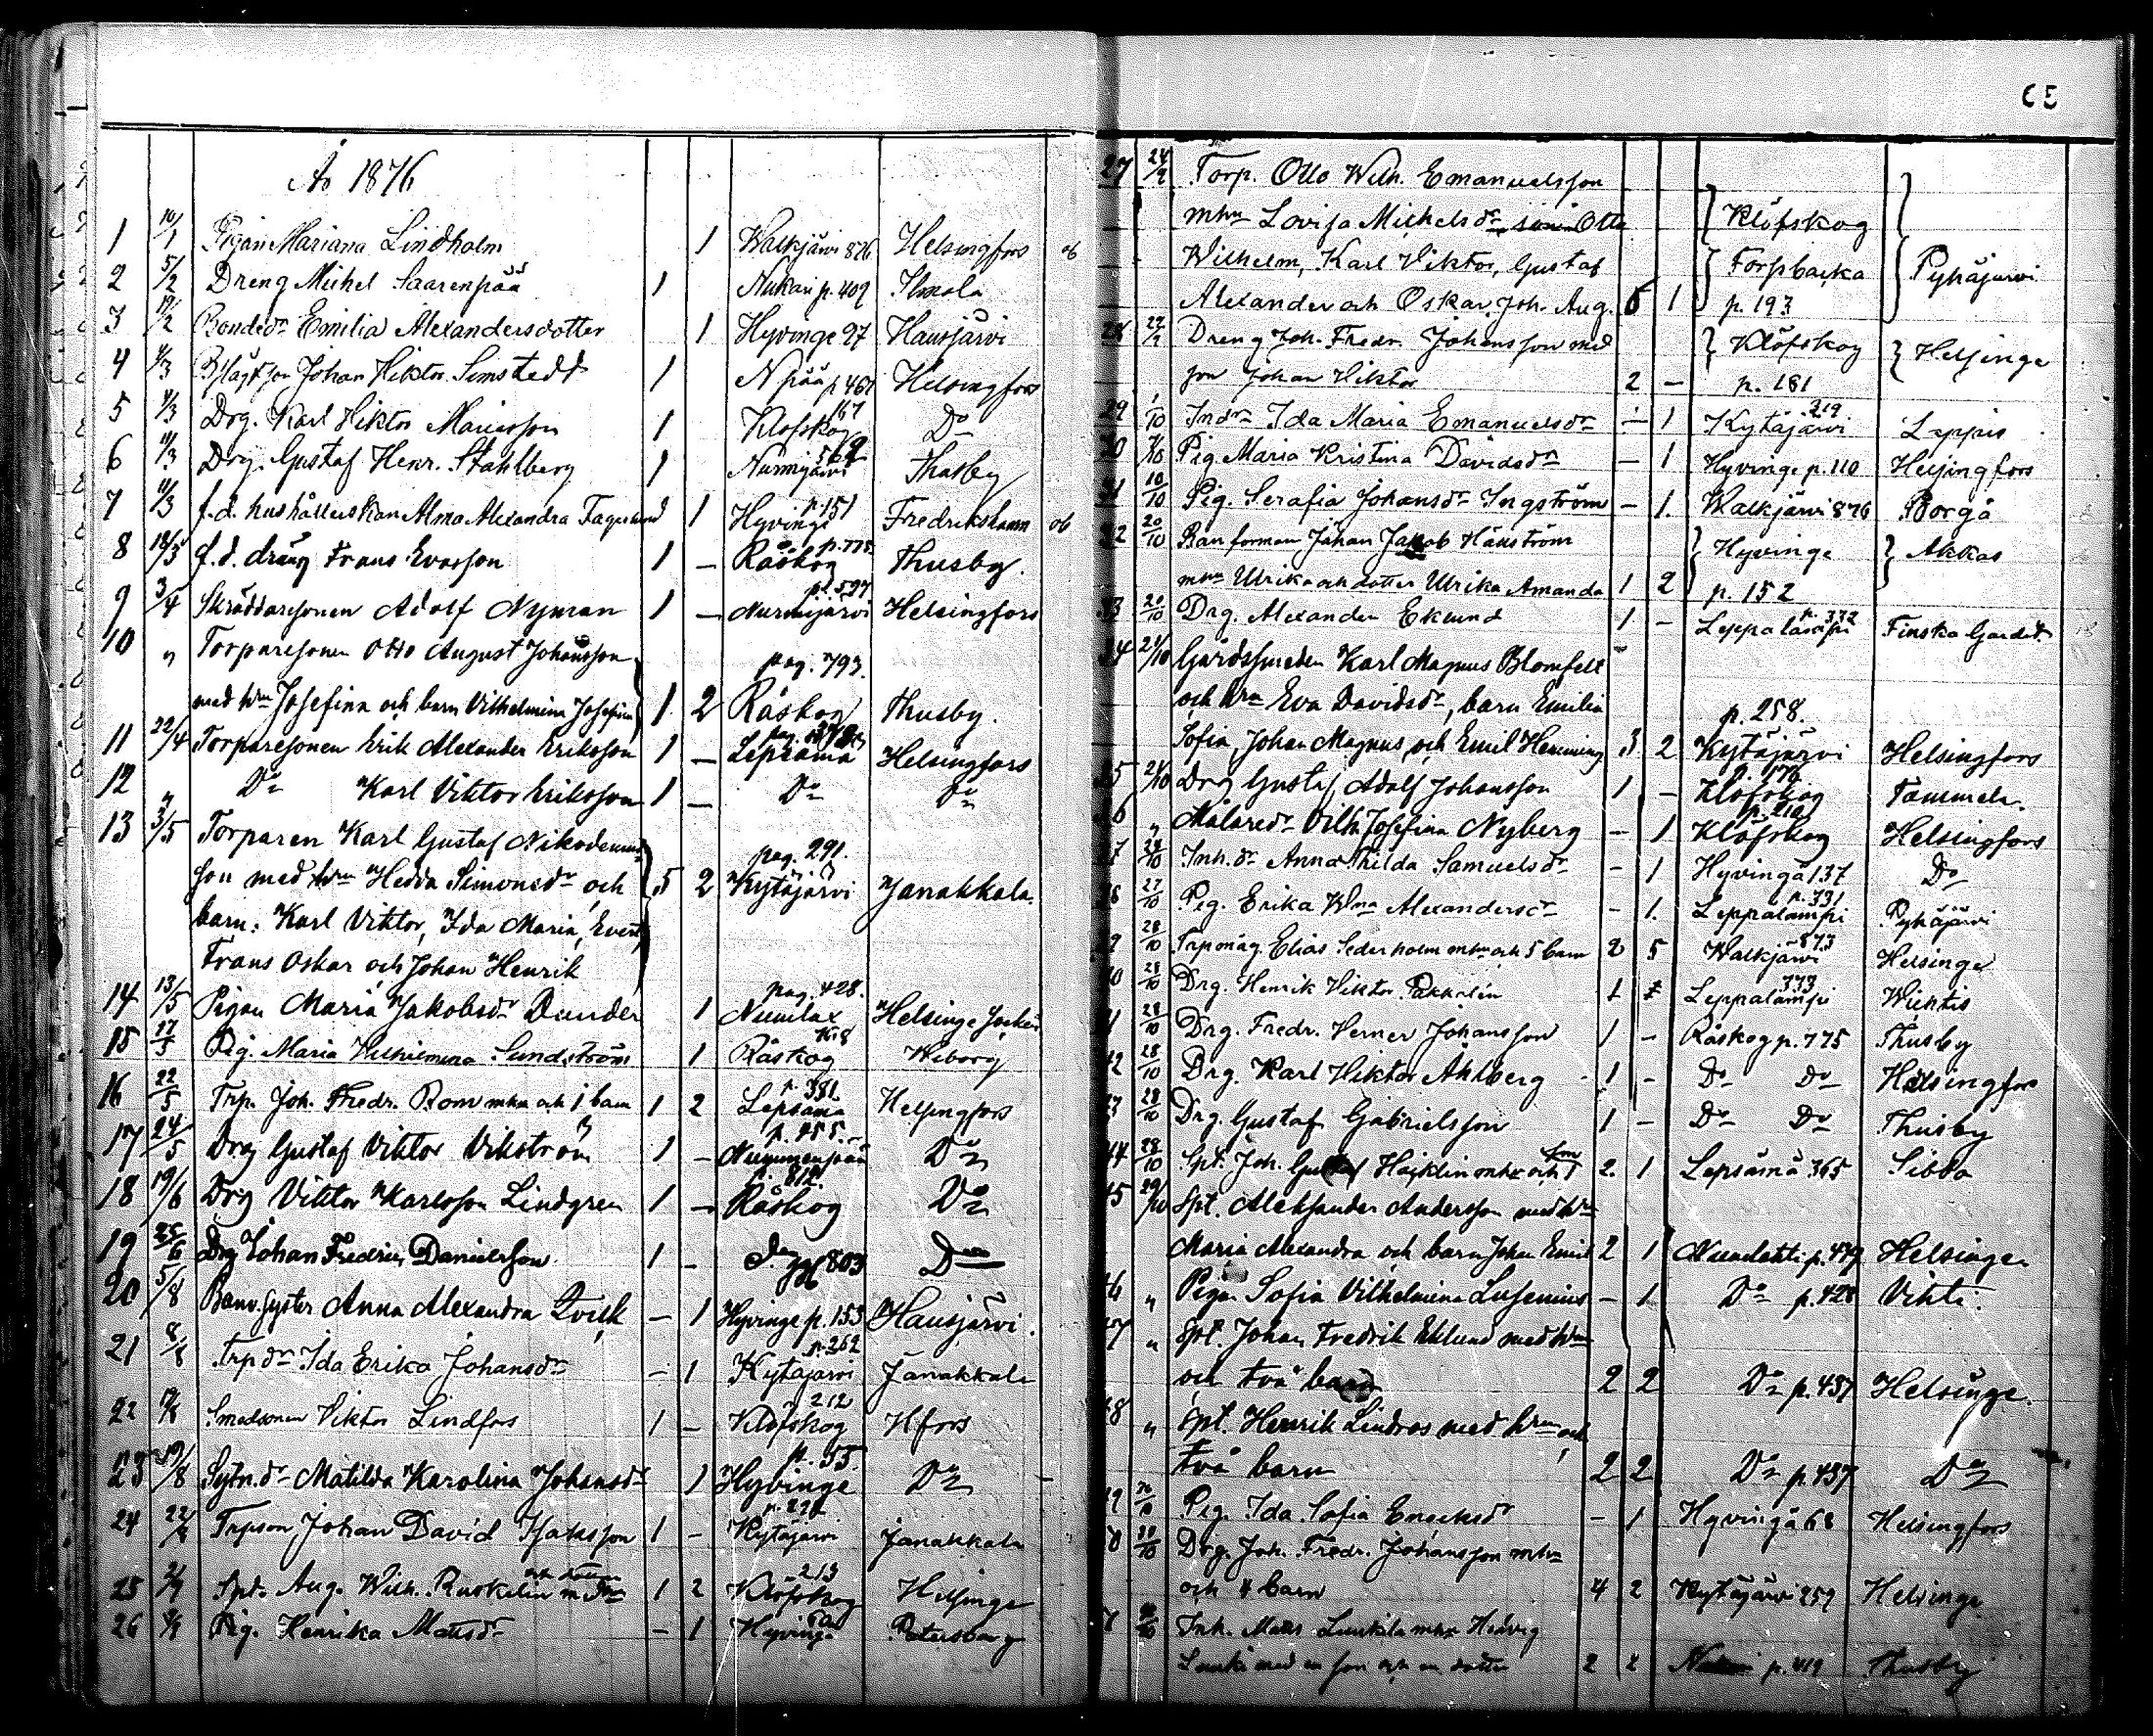 År 1876
1 10/1 Pigan Mariana Lindholm 1 Walkjärvi 876 Helsingfors
2 5/2 Dreng Michel Saarenpää 1 Nukari p. 409 Ilmola
3 Bonded:r Emilia Alexandersdotter 1 Hyvinge 97 Hausjärvi
4 Johan Viktor Simstedt 1 Npää p 461 Helsingfors
5 Drg. Karl Viktor Mariasson 1 Klöfskog 167 Do
6 Drg. Gustaf Henr. Stahlberg 1 Nurmijärvi Thusby
7 f.d. hushållerskan Alma Alexandra 1 Hyvinge p. 151 Fredrikshamn
8 18/3 f.d. dräng Frans Evasson 1 – Råskog p. 775 Thusby.
9 3/4 Skräddaresonen Adolf Nyman 1 – Nurmijärvi p. 597 Helsingfors
10 " Torparesonen Otto August Johansson pag. 793.
med h:n Josefina och barn Vilhelmina Josefina 1 2 Råskog Thusby.
11 22/4 Torparesonen Erik Alexander Eriksson 1 – Lepsämä Helsingfors
12 " Do Karl Viktor Eriksson 1 – Do Do
13 3/5 Torparen Karl Gustaf Nikodemus- pag. 291.
son med h:n Hedda Simonsd:r och 5 2 Kytäjärvi Janakkala.
barn: Karl Viktor, Ida Maria, Evert,
Frans Oskar och Johan Henrik
14 13/5 Pigan Maria Jakobsd:r Dunder 1 Numlax pag. 428. Helsinge
15 17/5 Pig. Maria Vilhelmina Sundström 1 Råskog Wiborg
16 22/5 Trp. Joh. Fredr. Rom mhu och 1 barn 1 2 Lepsämä p. 381 Helsingfors
17 24/5 Drg Gustaf Viktor Vikström 1 – p. 455. Do
18 19/6 Drg Viktor Karlsson Lindgren 1 – Råskog p. 812. Do
19 Drg Johan Fredrik Danielsson 1 – 803 Do
20 5/8 Banv. syster Anna Alexandra Qvick – 1 Hyvinge p. 153 Hausjärvi.
21 8/8 Trp d:r Ida Erika Johansd:r – 1 Kytäjärvi p. 262 Janakkala
22 Smedsonen Viktor Lindfors 1 – Klöfskog 212 Hfors
23 19/8 Sytn.d:r Matilda Karolina Johansd:r 1 Hyvinge p. 55. Do
24 Trpson Johan David Isaksson 1 – Kytäjärvi Janakkala
25 Spt. Aug. Wilh. Ruskelin 1 2 Klöfskog 213 Helsinge
26 Pig. Henrika Matsd:r – 1 Hyvinge Petersburg
27 Torp. Otto Wilh. Emanuelsson
mhu Lovisa Michelsd:r Otto Klöfskog
Wilhelm, Karl Viktor, Gustaf Torpbacka Pyhäjärvi
Alexander och Oskar Joh. Aug. 5 1 p. 193
28 Dreng Joh. Fredr. Johansson med Klöfskog Helsinge
son Johan Viktor 2 – p. 181
29 Ind:r Ida Maria Emanuelsd:r – 1 Kytäjärvi 219. Leppis
30 Pig. Maria Kristina Davidsd:r – 1 Hyvinge p. 110 Helsingfors
31 10/10 Pig. Serafia Johansd:r Ingström – 1. Walkjärvi 876 Borgå
32 20/10 Banforman Johan Jakob Hänström Hyvinge Akkas
mhu Ulrika och dotter Ulrika Amanda 1 2 p. 152
33 20/10 Drg. Alexander Eklund 1 – Leppälampi p. 372 Finska Gardet.
34 21/10 Gårdssmeden Karl Magnus Blomfelt
och h:n Eva Davidsd:r, barn Emilia p. 258.
Sofia, Johan Magnus och Emil Henning 3 2 Kytäjärvi Helsingfors
35 21/10 Drg Gustaf Adolf Johansson 1 – Klöfskog p. 176 Tammela.
36 " Målared:r Vilh. Josefina Nyberg – 1 Klöfskog Helsingfors
37 Inh. d:r Anna Thilda Samuelsd:r – 1 Hyvingä 137 Do
38 27/10 Pig. Erika Wma Alexandersd:r – 1. Leppälampi p. 331 Pyhäjärvi
39 28/10 Elias Sederholm mhu och 5 barn 2 5 Walkjärvi 873 Helsinge
40 28/10 Drg. Henrik Viktor Pakkalén 1 Leppälampi 333 Wichtis
41 28/10 Drg. Fredr. Verner Johansson 1 – Råskog p. 775 Thusby
42 28/10 Drg. Karl Viktor Åhlberg 1 – Do Do Helsingfors
43 28/10 Drg. Gustaf Gabrielsson 1 – Do Do Thusby
44 28/10 Spt. Joh. Gustaf mhu och 1 son 2. 1 Lepsämä 365 Sibbo
45 29/10 Spt. Aleksander Andersson med h:n
Maria Alexandra och barn Johan Emil 2 1 p. 479 Helsinge
46 " Pigan Sofia Vilhelmina Lusenius – 1 Do p. 428 Vihti.
47 " Spt. Johan Fredrik Eklund med h:n
och två barn 2 2 Do p. 437 Helsinge.
48 " Spt. Henrik Lindros med h:n och
två barn 2 2 Do p. 437 Do
49 Pig. Ida Sofia Enoksd:r – 1 Hyvingä 68 Helsingfors
50 Drg. Joh. Fredr. Johansson mhu
och 4 barn 4 2 Kytäjärvi 259 Helsinge
Inh. Mats mhu Hedvig
med en son och en dotter 2 2 p. 419 Thusby